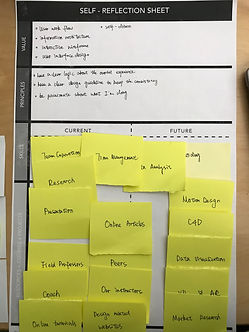 SELF - REFLECTION SHEET
VALUE
• user work flow
• self-driven
• information architecture
• interactive wireframe
• user interface design
PRINCIPLES
• have a clear logic about the market experience
• have a clear design guideline to keep the consistency
• be passionate about what I'm doing
CURRENT
FUTURE
SKILLS
Team Cooperation
Team Management
Analysis
Research
Motion Design
Presentation
Online Articles
C4D
Data Visualization
Field Professors
Peers
AR
Coach
Our Instructors
Market Research
Online Tutorials
Design related
websites